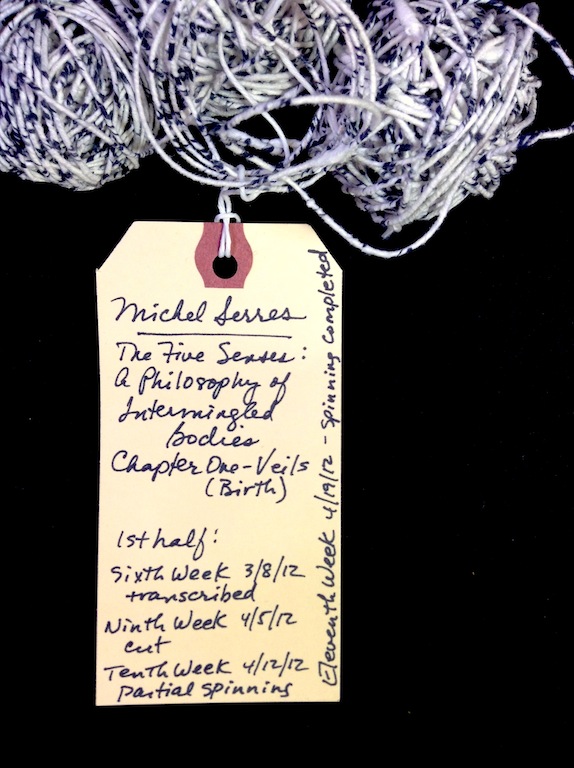 Michel Serres
The Five Senses:
A Philosophy of
Intermingled
Bodies
Chapter One-Veils
(Birth)
1st half:
Sixth Week 3/8/12
transcribed
Ninth Week 4/5/12
cut
Tenth Week 4/12/12
Partial spinning
Eleventh Week 4/19/12 - spinning completed